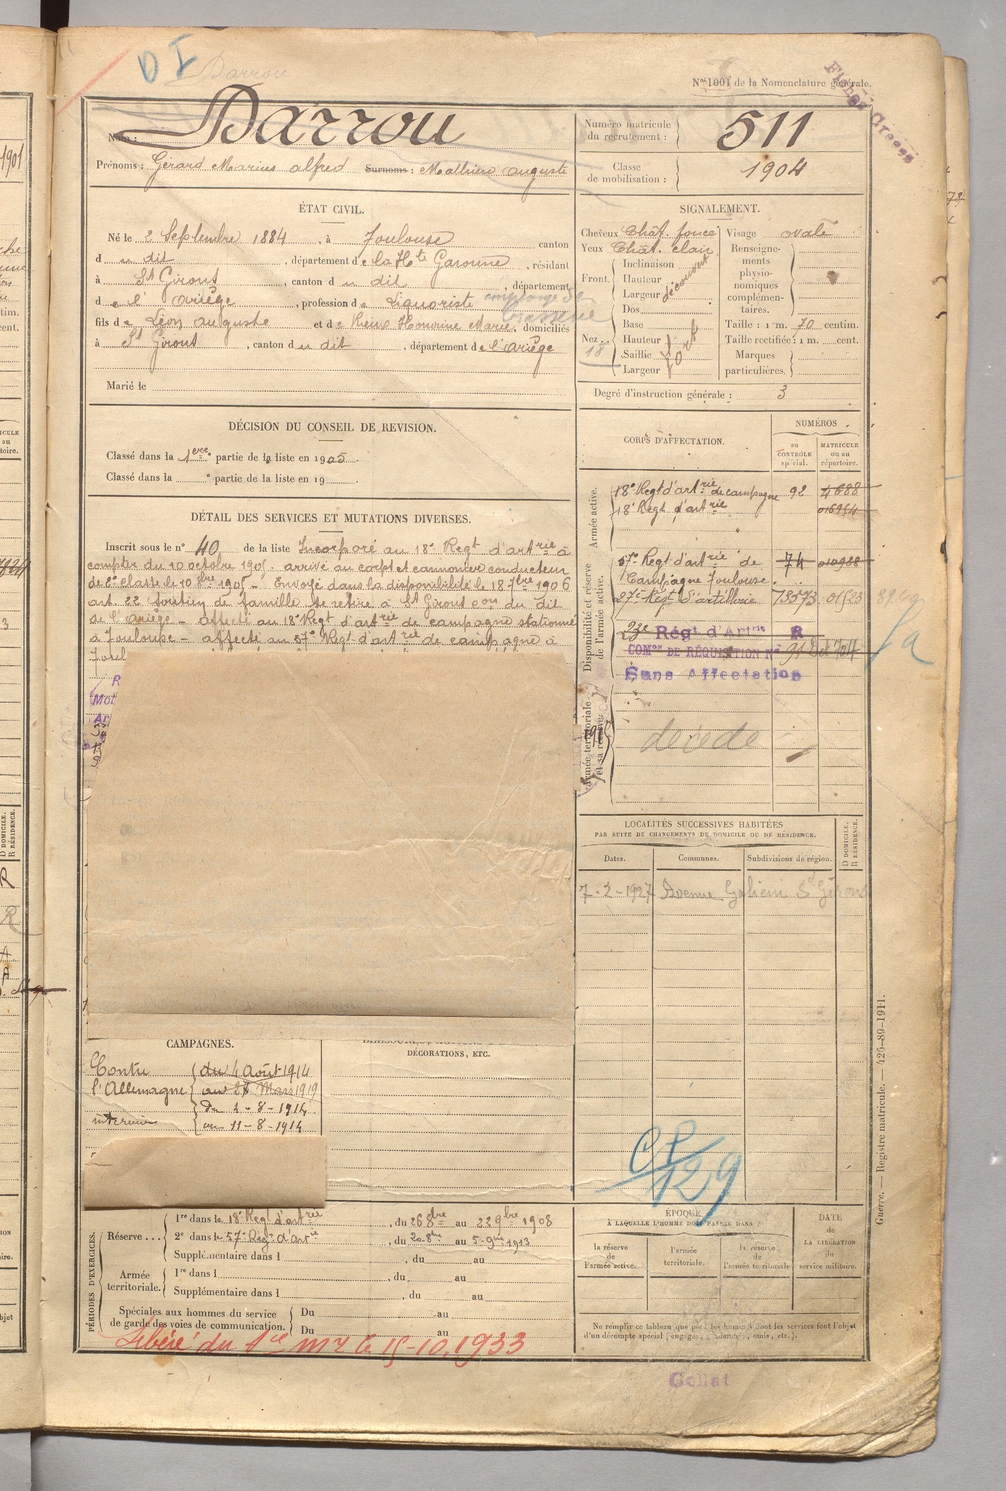 D I
Darrou
N° 1001 de la Nomenclature générale.
Fichés Gressé
Nom : Darrou
Prénoms : Gérard Marius alfred Surnoms : Mathieu auguste
Numéro matricule du recrutement : 511
Classe de mobilisation : 1904
ÉTAT CIVIL.
Né le 2 Septembre 1884, à Toulouse canton
d u dit, département de la Hte Garonne, résidant
à St Girons, canton d u dit, département
d e l'ariège, profession de Liquoriste employé de
fils de Léon auguste et de Rieu Honorine Marie, domiciliés
à St Girons, canton d u dit, département de l'ariège
Marié le
SIGNALEMENT.
Cheveux Chât. foncé Visage ovale
Yeux Chât. clair
Front. Inclinaison
Hauteur
Largeur découvert
Nez. Dos
Base
Hauteur
Saillie fort
Largeur
18
Renseignements physionomiques complémentaires.
Taille : 1 m. 70 centim.
Taille rectifiée : 1 m. cent.
Marques particulières.
Degré d'instruction générale : 3
DÉCISION DU CONSEIL DE REVISION.
Classé dans la 1ere partie de la liste en 1905.
Classé dans la e partie de la liste en 19
DÉTAIL DES SERVICES ET MUTATIONS DIVERSES.
Inscrit sous le n° 40 de la liste Incorporé au 18e Regt d'artrie à
compter du 10 octobre 1905. arrivé au corps et cannonier conducteur
de 2e classe le 10 8bre 1905 - Envoyé dans la disponibilité le 18 7bre 1906
art. 22 soutien de famille se retire à St Girons con du dit
de l'ariège - affecté au 18e Regt d'artrie de campagne stationné
à Toulouse - affecté au 57e Regt d'artrie de campagne à
Toul
CORPS D'AFFECTATION.
NUMÉROS
au CONTRÔLE spécial.
MATRICULE ou au répertoire.
Armée active.
18e Regt d'artrie de campagne 92 4688
18e Regt d'artrie 016954
Disponibilité et réserve de l'armée active.
57e Regt d'artrie de 74 010988
Campagne Toulouse.
57e Regt d'artillerie 73573 01523
23e Régt d'Artrie R
COMon DE RÉQUISITION N° 91
Sans Affectation
Armée territoriale et sa réserve.
décédé
LOCALITÉS SUCCESSIVES HABITÉES
PAR SUITE DE CHANGEMENTS DE DOMICILE OU DE RÉSIDENCE.
Dates.
Communes.
Subdivisions de région.
D DOMICILE.
R RÉSIDENCE.
7-2-1927 Avenue Galieni St Girons
CAMPAGNES.
Contre l'Allemagne du 4 Août 1914
au 28 Mars 1919
intérieur du 2-8-1914
au 11-8-1914
DÉCORATIONS, ETC.
CP 129
PÉRIODES D'EXERCICES.
Réserve... 1re dans le 18e Regt d'artrie, du 26 8bre au 22 9bre 1908
2e dans le 57e Regt d'artie, du 20 8bre au 5 9bre 1913
Supplémentaire dans l , du au
Armée territoriale. 1re dans l , du au
Supplémentaire dans l , du au
Spéciales aux hommes du service de garde des voies de communication. Du au
Du au
Libéré du 1er mre le 15-10-1933
ÉPOQUE
À LAQUELLE L'HOMME DOIT PASSER DANS
la réserve de l'armée active.
l'armée territoriale.
la réserve de l'armée territoriale
DATE de LA LIBÉRATION du service militaire.
Ne remplir ce tableau que pour les hommes dont les services font l'objet
d'un décompte spécial (engagés, ajournés, omis, etc.).
Guerre. — Registre matricule. — 425-89-1911.
Collat